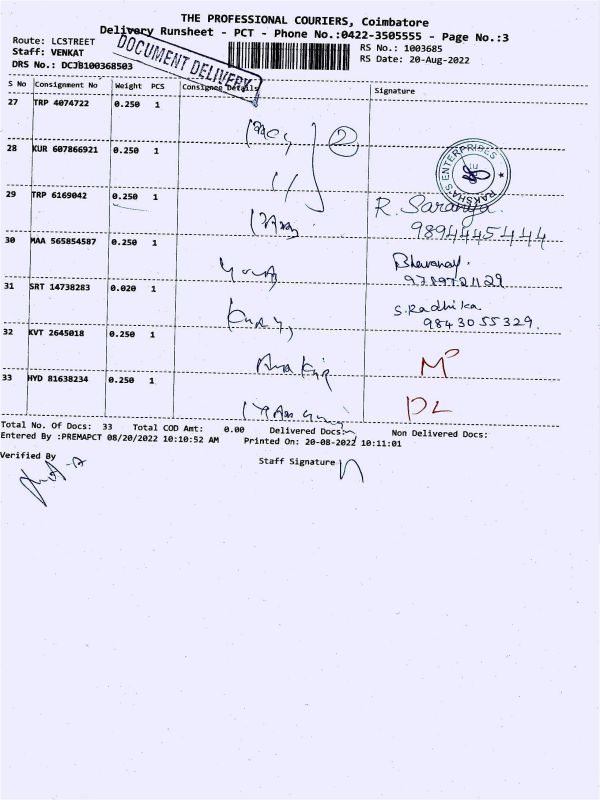 THE PROFESSIONAL COURIERS, Coimbatore
Delivery Runsheet - PCT - Phone No.:0422-3505555 - Page No.:3
Route: LCSTREET
RS No.: 1003685
Staff: VENKAT
RS Date: 20-Aug-2022
DRS No.: DCJB100368503
DOCUMENT DELIVERY
S No Consignment No Weight PCS Consignee Details Signature
27 TRP 4074722 0.250 1
2
28 KUR 607866921 0.250 1
RAKSHA'S ENTERPRISES
29 TRP 6169042 0.250 1 R. Saranya
9894445444
30 MAA 565854587 0.250 1
9789721129
31 SRT 14738283 0.020 1 S.Radhika
9843055329.
32 KVT 2645018 0.250 1
33 HYD 81638234 0.250 1 DL
Total No. Of Docs: 33 Total COD Amt: 0.00 Delivered Docs: Non Delivered Docs:
Entered By :PREMAPCT 08/20/2022 10:10:52 AM Printed On: 20-08-2022 10:11:01
Verified By
Staff Signature